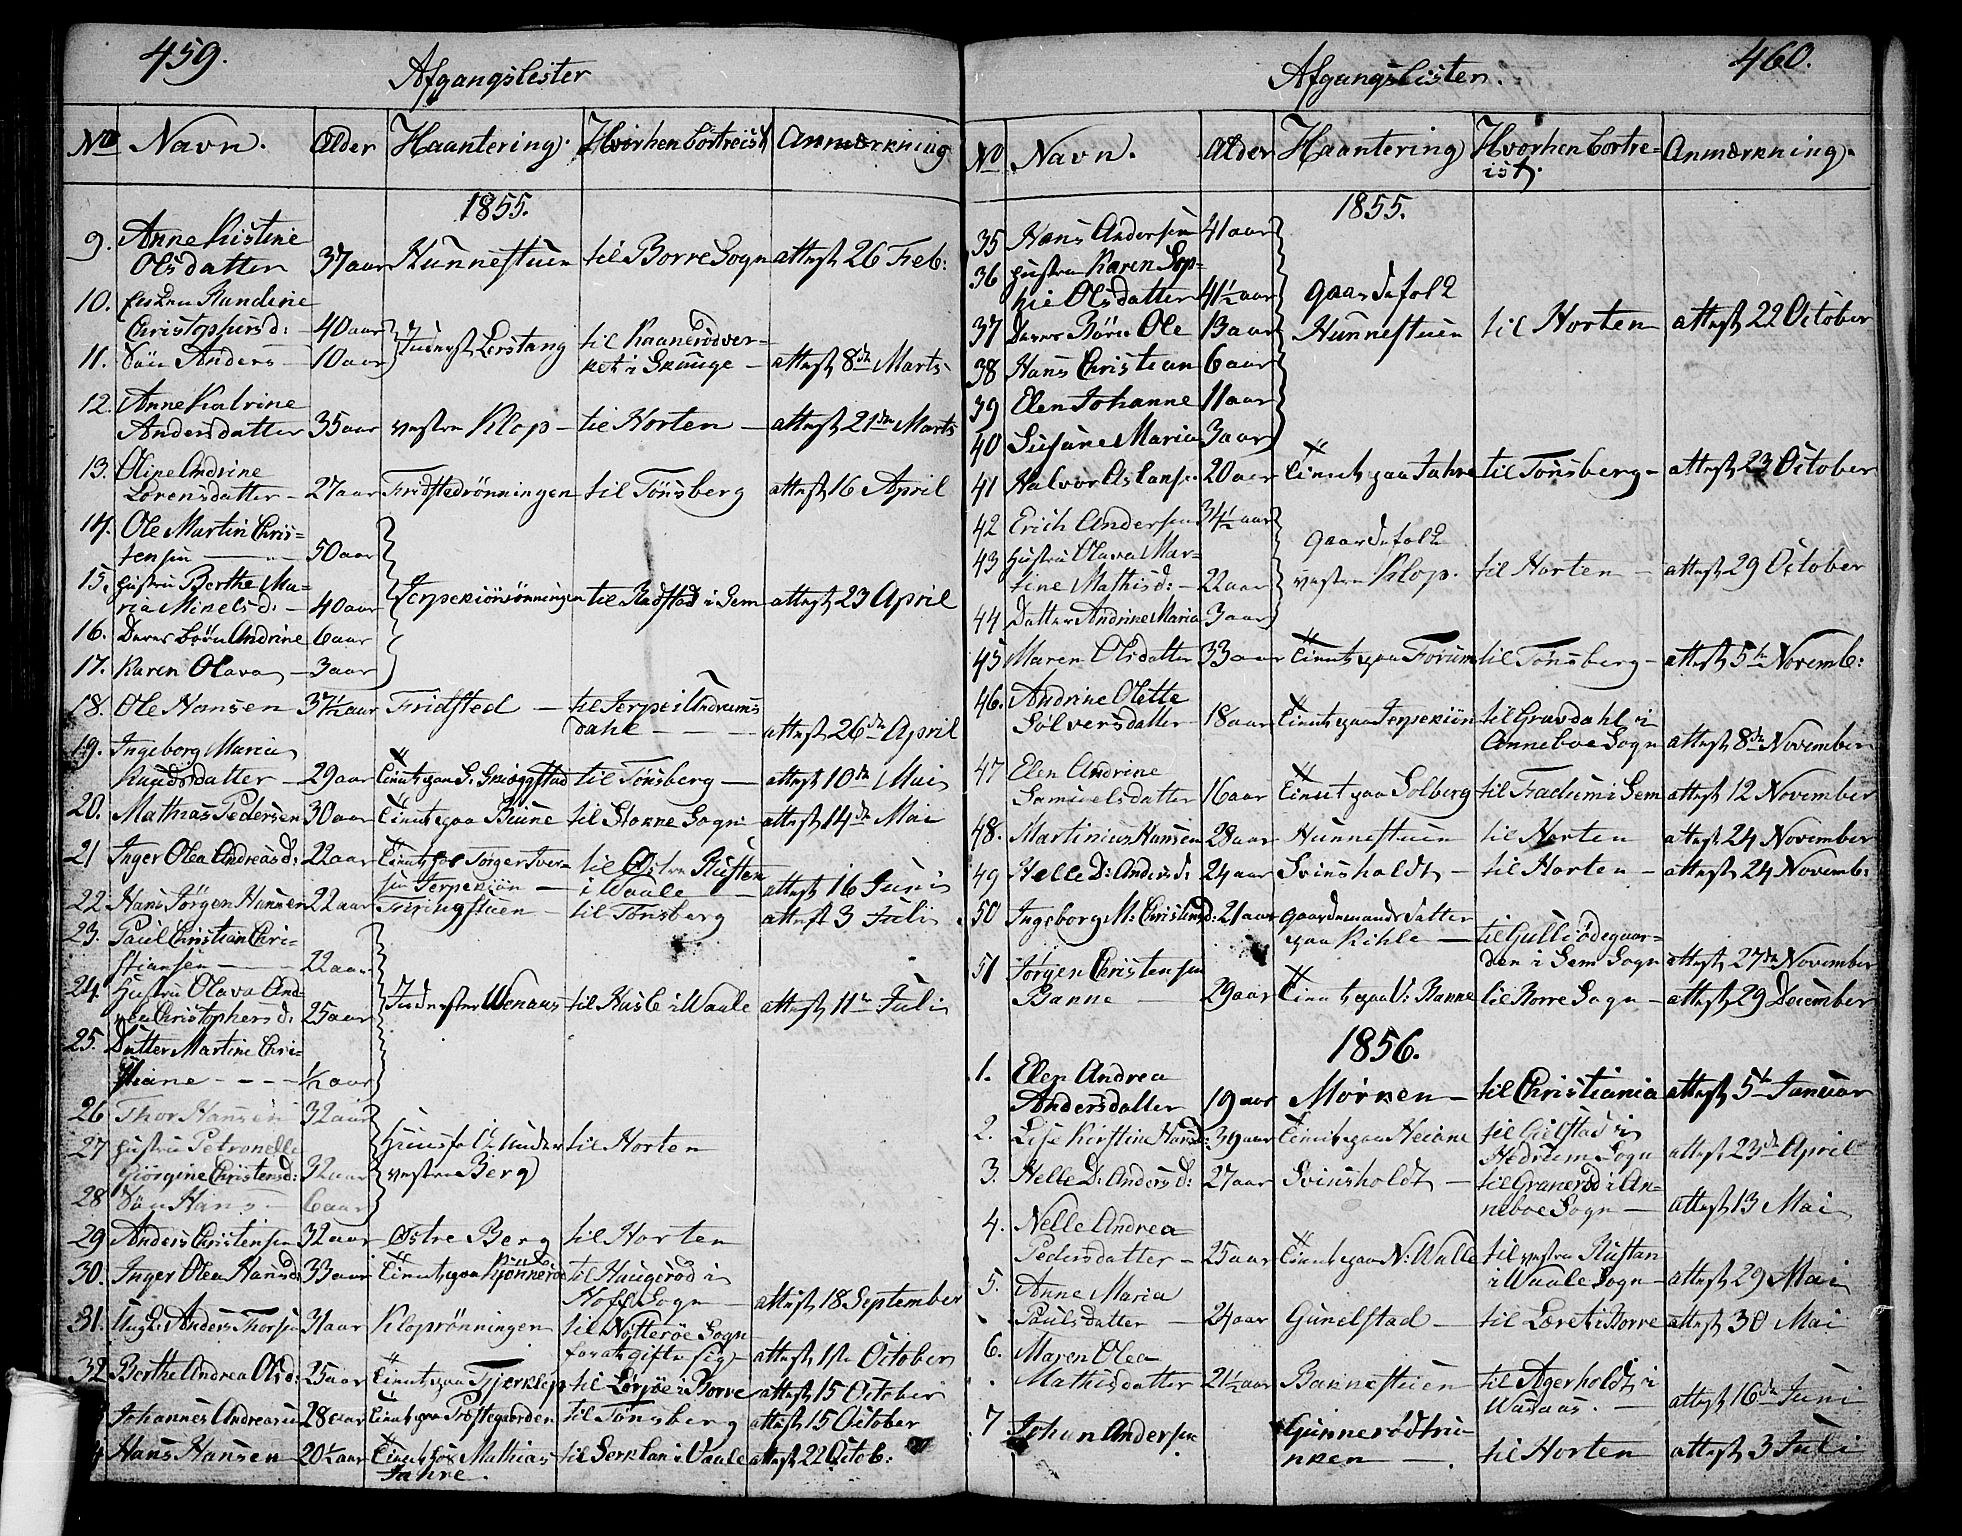 459.
Afgangslister
No Navn. Alder Haantering. Hvorhen bortreist Anmærkning
1855.
9. Anne Kistine
Olsdatter 37 aar Hunnestuen til Borre Sogn attest 26 Feb:
10. Randine
Christophersd: 40 aar Lerstang til Raanerødver-
11. Søn Anders 10 aar ket i Skouge attest 8de Marts
12. Anne Katrine
Andersdatter 35 aar vestre Klop til Horten attest 21de Marts
13. Oline Andrine
Lorensdatter 27 aar Fridstedrønningen til Tønsberg attest 16 April
14. Ole Martin Chris-
tensen 50 aar
15. hustru Berthe Ma-
ria Nirelsd: 40 aar Jerpekiønrønningen til Rastad i Sem attest 23 April
16. Deres børn Andrine 6 aar
17. Karen Olava 3 aar
18. Ole Hansen 37½ aar Fridsted til Jerpes i Undrums
dahle attest 26de April
19. Ingeborg Maria
Knudsdatter 29 aar tinnt paa S. Skiæggstad til Tønsberg attest 10de Mai
20. Mathias Pedersen 30 aar tinnt paa Biune til Stokke Sogn attest 14de Mai
21 Inger Olea Andreasd: 22 aar tinnt hos Tørger Iver- til Østre Rusten
sen Jerpekiøn i Vaale attest 16 Juni
22 Hans Jørgen Hansen 22 aar Fyringstuen til Tønsberg attest 3 Juli
23. Paul Christian Chri-
stiansen 22 aar
24. Hustru Olava And-
rea Christophersd: 25 aar Wenaas til Hasle i Vaale attest 11te Juli
25. Datter Martine Chri-
stiane ½ aar
26 Thor Hansen 32 aar
27 hustru Petronelle Huusfolk under til Horten
Giørgine Christensd: 32 aar vestre Berg
28 Søn Hans 6 aar
29 Anders Christensen 32 aar Østre Berg til Horten
30. Inger Olea Hansd: 33 aar tinnt paa Kjønnerød til Haugerød i
Hoff Sogn attest 18 September
31. Ungk: Anders Thorsen 31 aar Kloprønningen til Nøtterøe Sogn
for at gifte sig attest 1ste October
32. Berthe Andrea Olsd: 25 aar tinnt paa Fjerklep til Lørjøe i Borre attest 15 October
Johannes Andreasen 28 aar tinnt paa Præstegaarden til Tønsberg attest 15 October
4 Hans Hansen 20½ aar tinnt hos Mathias til Serklan i Vaale attest 22 Octob:
Jahre.
460.
Afgangslisten.
No Navn. Alder Haantering Hvorhen bortre- Anmærkning.
ist.
1855.
35 Hans Andersen 41 aar
36 hustru Karen Sop-
hie Olsdatter 41½ aar gaardsfolk
37 Deres Børn Ole 13 aar Hunnestuen til Horten attest 22 October
38 Hans Christian 6 aar
39 Elen Johanne 11 aar
40 Susane Maria 3 aar
41 Halvor Aslaks: 20 aar tinnt paa Jahre til Tønsberg attest 23 October
42 Erich Andersen 34½ aar
43 hustru Olava Mar- gaardsfolk
tine Mathisd: 22 aar vestre Klop. til Horten attest 29 October
44 Datter Andrine Maria 3 aar
45 Maren Olsdatter 33 aar tinnt paa Forum til Tønsberg attest 5te Novemb:
46. Andrine Olette
Sølversdatter 18 aar tinnt paa Jerpekiøn til Gravdahl i
Anneboe Sogn attest 8de November
47 Elen Andrine
Samuelsdatter 16 aar tinnt paa Solberg til Fadum i Sem attest 12 November
48. Martinius Hansen 28 aar Hunnestuen til Horten attest 24 November
49 Helle D: Andersd: 24 aar Svinsholdt til Horten attest 24 Novemb:
50 Ingeborg M: Christensd: 21 aar gaardmandsdatter
paa Kihle til Gulliødegaar-
den i Sem Sogn attest 27de November
51 Jørgen Christensen
Banne 29 aar tinnt paa V: Banne til Borre Sogn attest 29 December
1856.
1. Elen Andrea
Andersdatter 19 aar Mørken til Christiania attest 5te Januar
2. Lise Kirstine Hansd: 39 aar tinnt paa Heiane til Gulstad i
Hedrum Sogn attest 23de April
3. Helle D: Andersd: 27 aar Svinsholdt til Granerød i An-
neboe Sogn attest 13 Mai
4. Nelle Andrea
Pedersdatter 25 aar tinnt paa N: Walle til vestre Rustan
i Waale Sogn attest 29 Mai
5. Anne Maria
Paulsdatter 24 aar Gunelstad til Løret i Borre attest 30 Mai
6. Maren Olea
Mathisdatter 21½ aar Bannestuen til Agerholdt i
Wasaas. attest 16de Juni
7 Johan Andersen Gunnerødtri-
nken til Horten attest 3 Juli